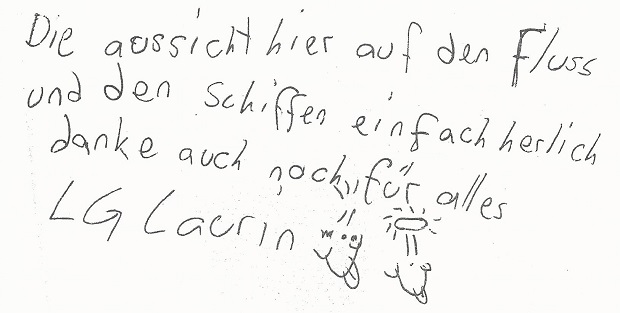 Die aussicht hier auf den Fluss
und den schiffen einfach herlich
danke auch noch für alles
LG Laurin